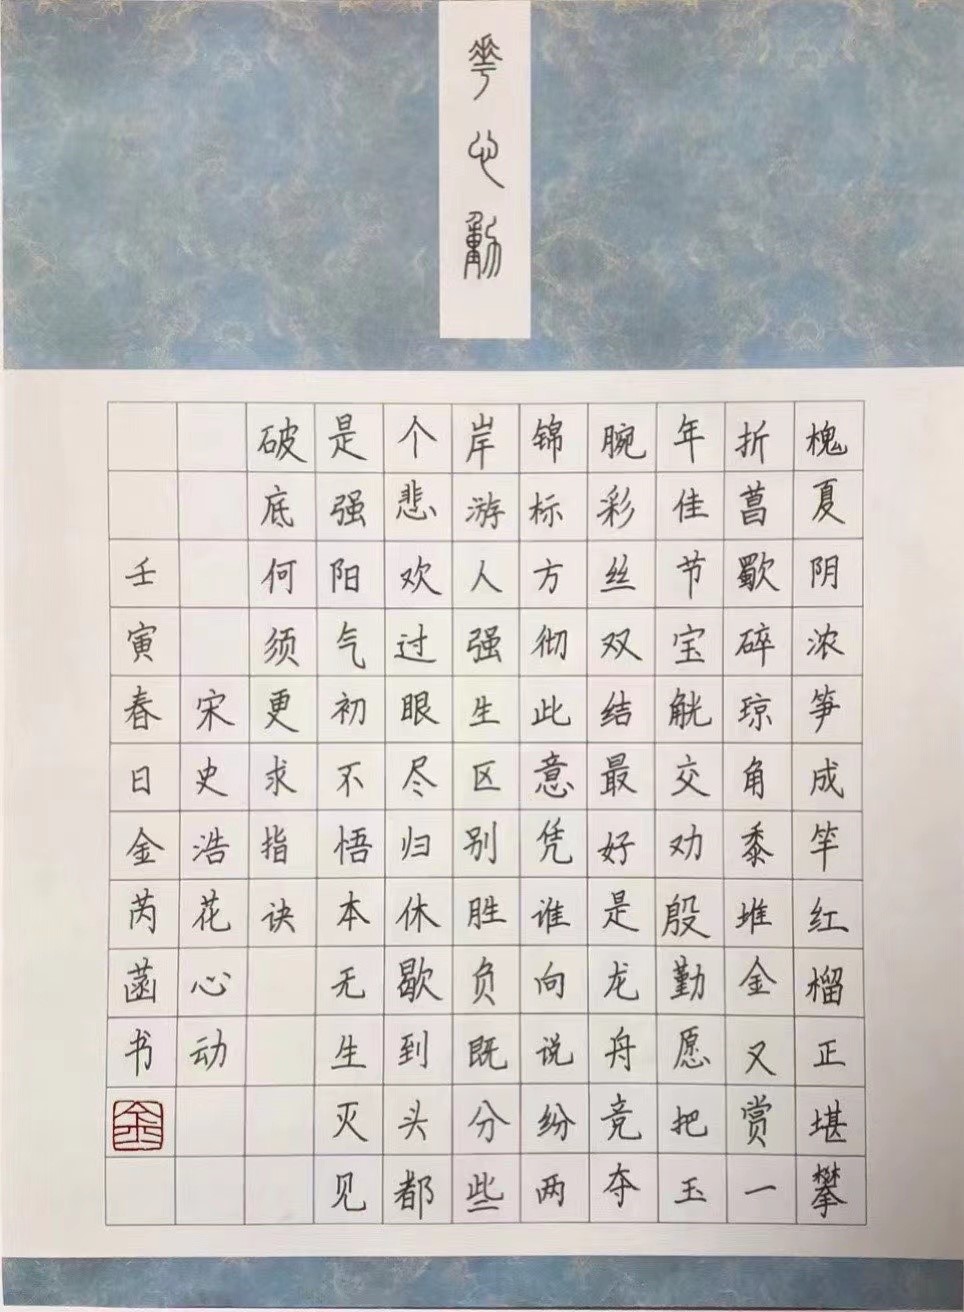 華心動
槐夏阴浓笋成竿红榴正堪攀
折菖歜碎琼角黍堆金又赏一
年佳节宝觥交劝殷勤愿把玉
腕彩丝双结最好是龙舟竞夺
锦标方彻此意凭谁向说纷两
岸游人强生区别胜负既分些
个悲欢过眼尽归休歇到头都
是强阳气初不悟本无生灭见
破底何须更求指诀
宋史浩花心动
壬寅春日金芮菡书
金